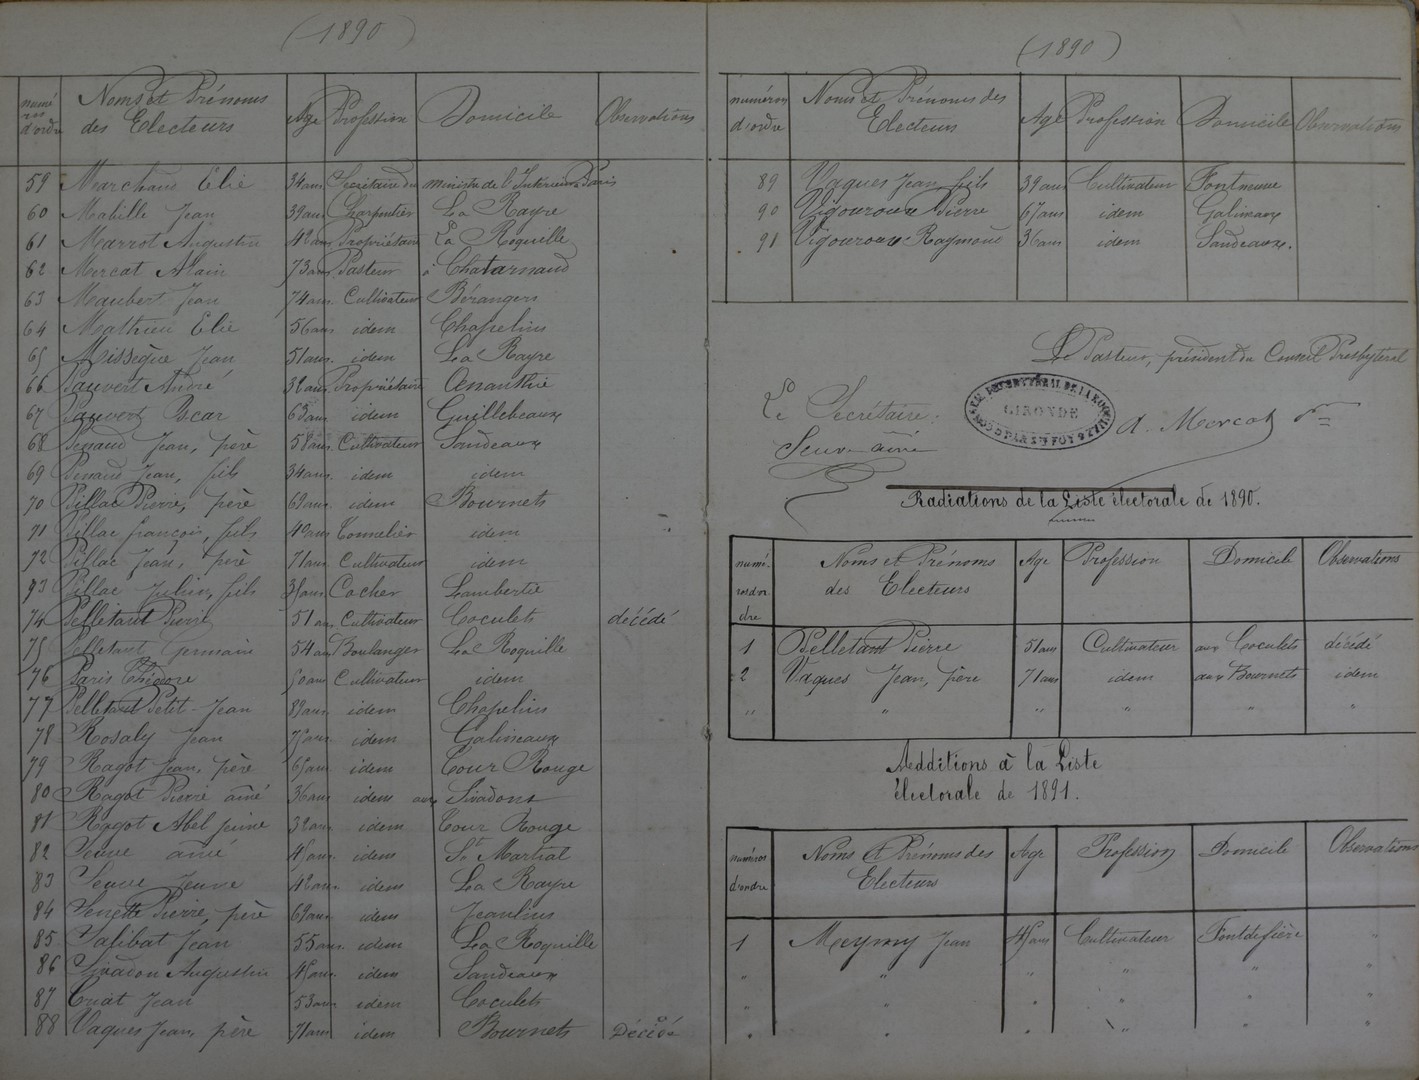 (1890)
numéro d'ordre Noms et Prénoms des Electeurs Age Profession Domicile Observations
59 Marchand Élie 34 ans Secrétaire du ministre de l'Intérieur Paris
60 Mabille Jean 39 ans Charpentier La Rayre
61 Marrot Augustin 42 ans Propriétaire La Roquille
62 Mercat Alain 73 ans Pasteur à Chatarnaud
63 Maubert Jean 74 ans Cultivateur Bérangers
64 Mathieu Elie 56 ans idem Chapelins
65 Missègue Jean 51 ans idem La Rayre
66 Pauvert André 32 ans Propriétaire Œnanthie
67 Pauvert Oscar 63 ans idem Guillebeaux
68 Penaud Jean, père 58 ans Cultivateur Sandeaux
69 Penaud Jean, fils 34 ans idem idem
70 Pillac Pierre, père 69 ans idem Bournets
71 Pillac françois, fils 40 ans Tonnelier idem
72 Pillac Jean, père 71 ans Cultivateur idem
73 Pillac Julien, fils 35 ans Cocher Lambertie
74 Pelletant Pierre 51 ans Cultivateur Coculets décédé
75 Pelletant Germain 54 ans Boulanger La Roquille
76 Paris Théodore 50 ans Cultivateur idem
77 Pelletant Petit-Jean 89 ans idem Chapelins
78 Rosaly Jean 75 ans idem Galineaux
79 Ragot Jean, père 65 ans idem Tour Rouge
80 Ragot Pierre aîné 36 ans idem aux Sivadons
81 Ragot Abel jeune 32 ans idem Tour Rouge
82 Seuve aîné 45 ans idem St Martial
83 Seuve Jeune 42 ans idem La Rayre
84 Senette Pierre, père 69 ans idem Jeanlins
85 Salibat Jean 55 ans idem La Roquille
86 Sivadon Augustin 45 ans idem Sandeaux
87 Criat Jean 53 ans idem Coculets
88 Vaques Jean, père 71 ans idem Bournets Décédé
(1890)
numéros d'ordre Noms et Prénoms des Electeurs Age Profession Domicile Observations
89 Vaques Jean fils 39 ans Cultivateur Fontmune
90 Vigouroux Pierre 67 ans idem Galineaux
91 Vigouroux Raymond 36 ans idem Sandeaux.
Le Pasteur, président du Conseil Presbytéral
Le Secrétaire:
GIRONDE
A. Mercat
Seuve aîné
Radiations de la Liste électorale de 1890.
numé- ros d'or dre Noms et Prénoms des Electeurs Age Profession Domicile Observations
1 Pelletant Pierre 51 ans Cultivateur aux Coculets décédé
2 Vaques Jean, père 71 ans idem aux Bournets idem
" " " " " "
Additions à la Liste
électorale de 1891.
numéros d'ordre Noms et Prénoms des Electeurs Age Profession Domicile Observations
1 Meymy Jean 45 ans Cultivateur Fontdefière "
" " " " " "
" " " " " "
" " " " " "